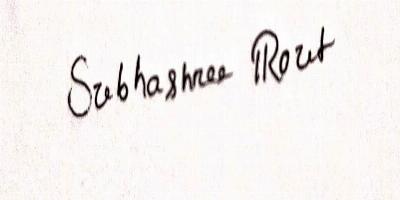 Subhashree Rout